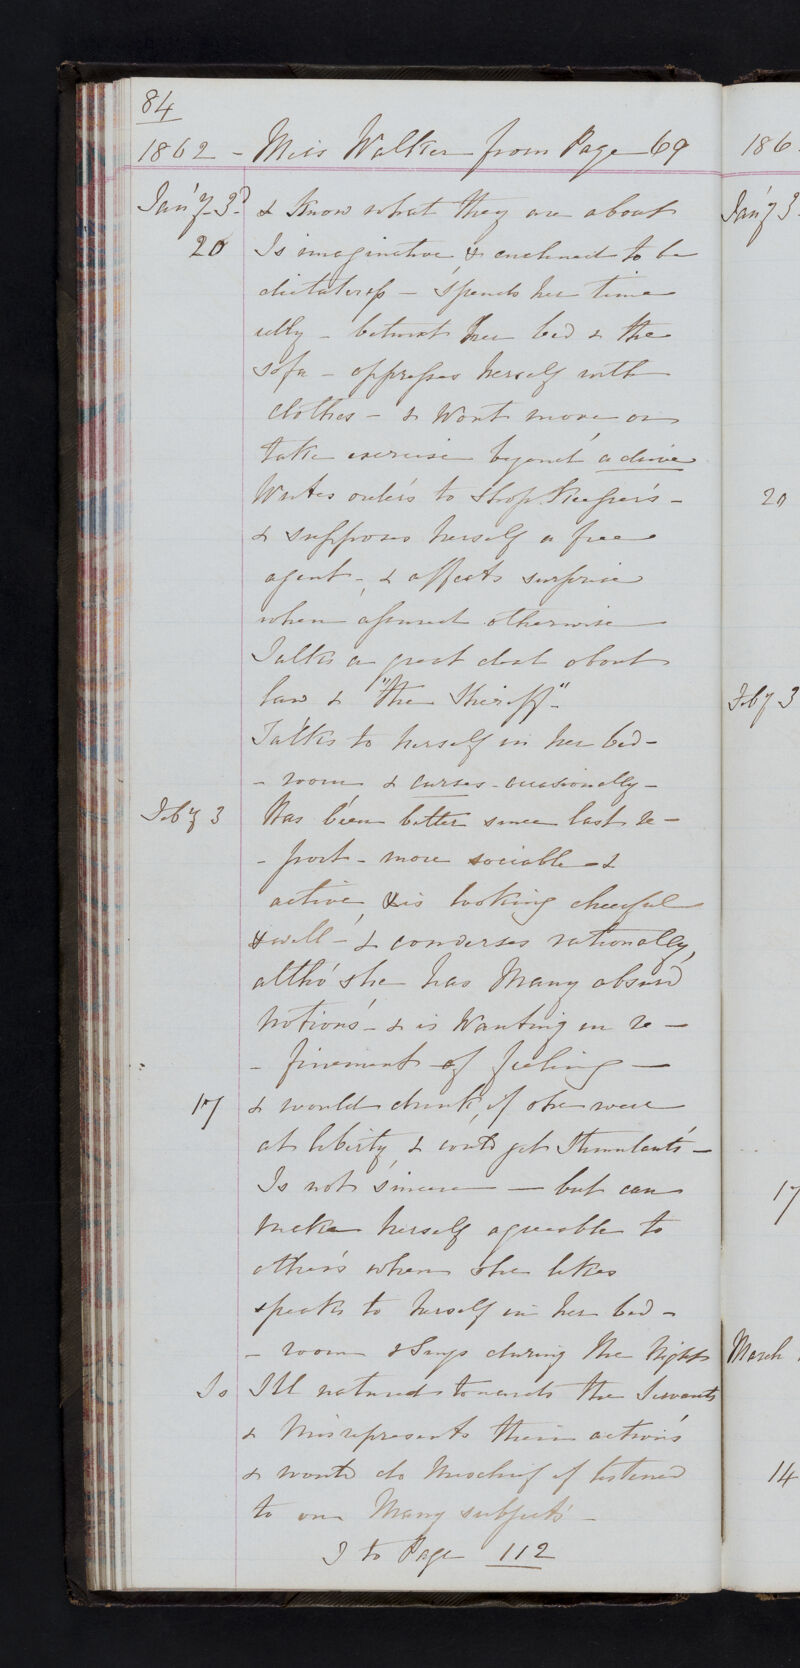 84
1862 - Miss Walker from Page 69
186
Jan'y 3d & Know what they are about
20 Is imaginative & enclined to be
dictatorial - Spends her time
idly - betwixt her bed & the
sofa - oppresses herself with
clothes - & Wont move or
take exercise beyond a drive
Writes orders to Shop Keepers -
& supposes herself a free
agent - & affects surprise
when assured otherwise
Talks a great deal about
law & "the Sheriff".
Talks to herself in her bed -
- room & curses occasionally -
Feby 3 Has been better since last re -
- port - more sociable &
active & is looking cheerful
& well - & converses rationally,
altho' she has Many absurd
Notions - & is Wanting in re -
- finement of feeling -
17 & would drink, if she were
at liberty, & could get Stimulants -
Is not sincere - but can
make herself agreeable to
others when she likes
speaks to herself in her bed -
- room & Sings during the Night
Is Ill natured towards the Servants
& Misrepresents their actions
& would do Mischief if listened
to on Many subjects -
to Page 112
Jan'y 3
20
Feby 3
17
March
14